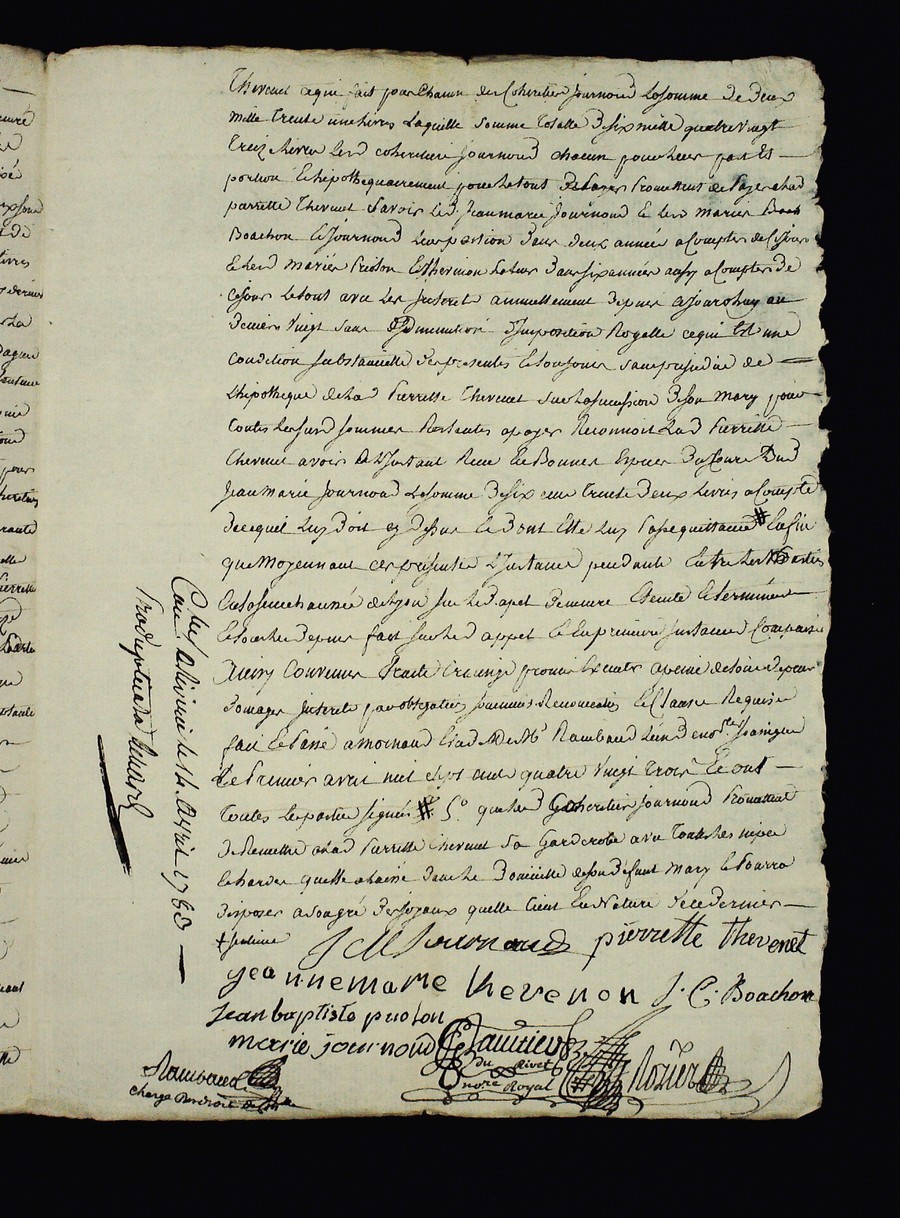 Thevenet ce qui fait pour Chacun des Coheritiers Journoud La somme De Deux
mille trente une livres Laquelle somme totalle De six mille quatre vingt
treize livres Lesd coheritiers Journoud chacun pour leur part Et
portion Et hipothequairement pour le tout promettent de payer a lad
pierrette Thevenet Savoir Led Jean marie Journoud Et Lesd mariés
Boachon Et Journoud leur portion Dans deux années a Compter de Ce jour
Et Lesd mariés priolon Et thevenon La leur Dans six années aussy a Compter De
Ce jour Le tout avec Les Interets annuellement Depuis aujourdhuy au
Denier Vingt sans Diminution D'imposition Royalle ce qui Est une
Condition substancielle Des presentes Et toujours sans prejudice de
L'hipotheque de Lad Pierrette Thevenet sur La succession De son Mary pour
toutes Lesd sommes Restantes a payer Reconnoit Lad Pierrette
Thevenet avoir a L'Instant Recu En Bonnes Especes Du Cours Dud
Jean Marie Journoud La somme De six cent trente Deux Livres a Compte
De ce qu'il Luy Doit cy Dessus Et Dont Elle Luy passe quittance # Enfin
que Moyennant ces presentes L'Instance pendante Entre Les parties
En La senechaussée de Lyon sur Led apel Demeure Eteinte Et terminée
Et tous les Depens fait sur Led appel Et En premiere Instance Compensés
Ainsy Convenu Traité transigé promis Executer a peine de tous Depens
Domages Interets par obligation soumissions Renonciations Et Clauses Requises
fait Et Passé a mornand Etude De Me Rambaud L'un D
Le Premier avril mil sept cent quatre Vingt trois Et ont
Toutes Les parties signés # 5° que Lesd Coheritiers Journoud promettent
De Remettre a Lad Pierrette Thevenet Sa Garderobe avec Toutes Les nipes
Et hardes quelle a laissé Dans Le Domicille de son Défunt Mary Et pourra
Disposer a son gré Des joyaux quelle tient En Nature De ce dernier
J M Journoud pierrette thevenet
jeannemarie thevenon J. C. Boachon
Jean baptiste priolon
marie journoud
Du Rivet
nore Royal
Rozier
Rambaud
Collé a Rivirie le 14. Avril 1783